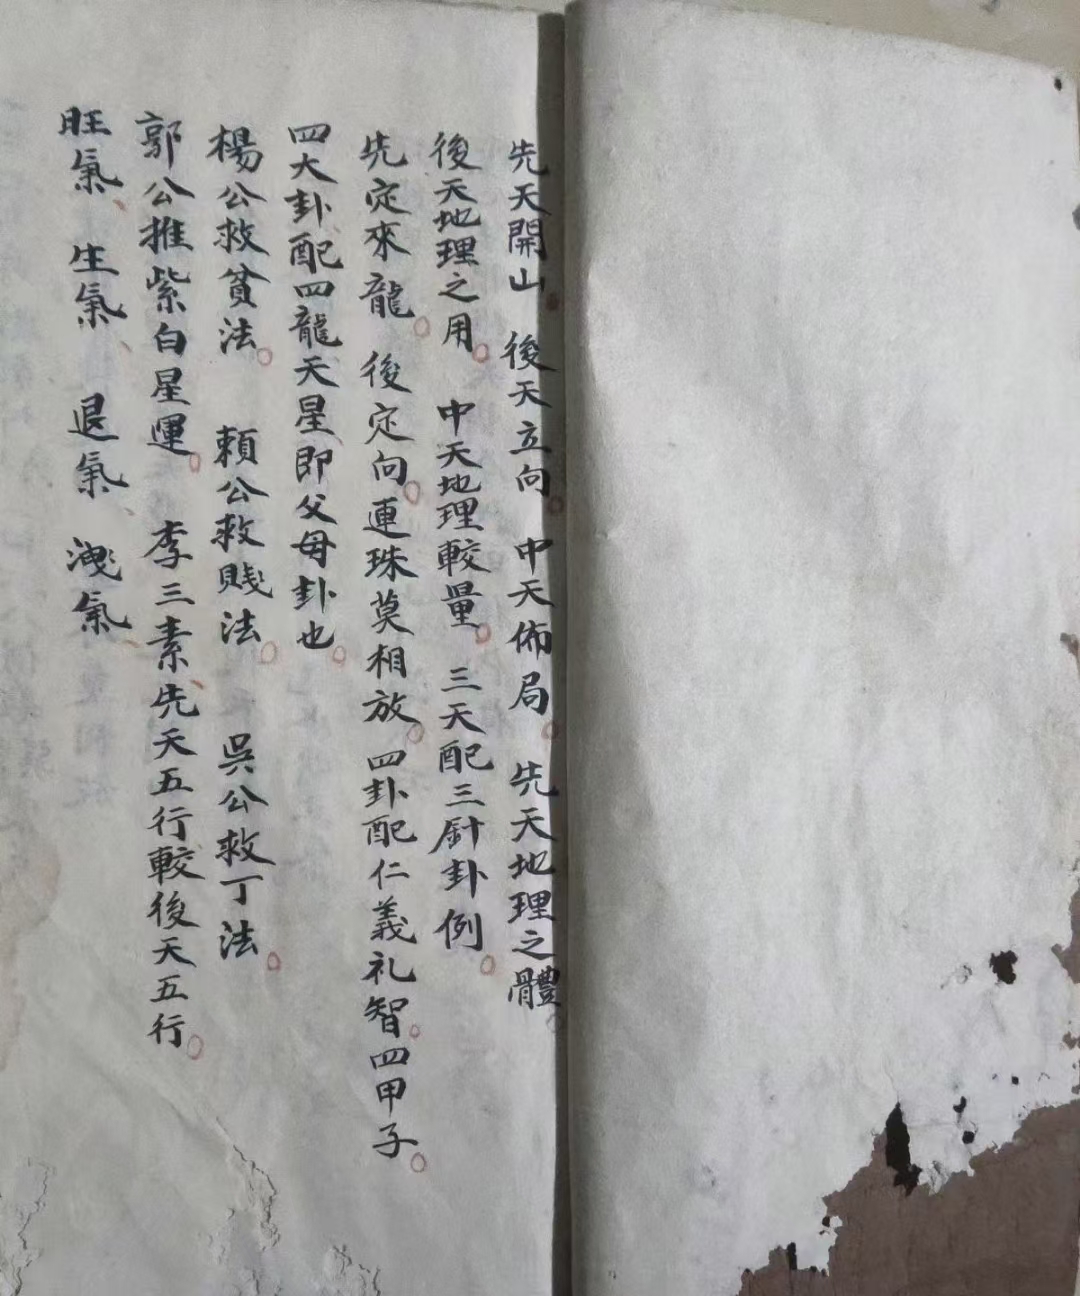 先天開山。後天立向。中天佈局。先天地理之體。
後天地理之用。中天地理較量。三天配三針卦例。
先定來龍。後定向。連珠莫相放。四卦配仁義礼智。四甲子。
四大卦、配四龍天星、即父母卦也。
楊公救貧法。賴公救賤法。吳公救丁法。
郭公推紫白星運。李三素、先天五行較後天五行。
旺氣、生氣、退氣、洩氣、